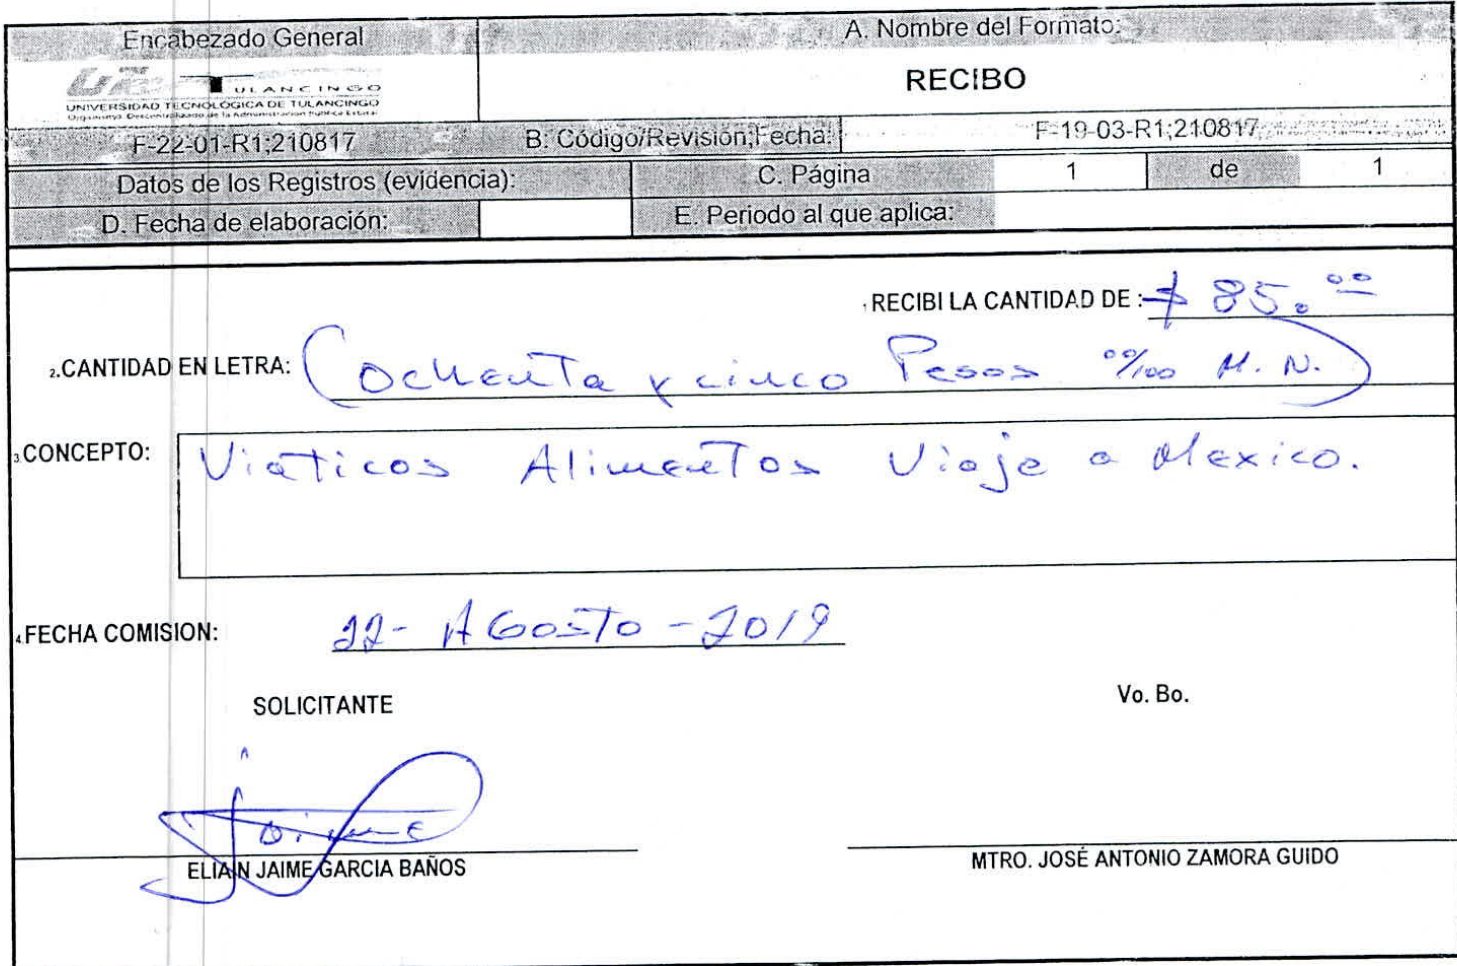 Encabezado General
A. Nombre del Formato:
TULANCINGO
UNIVERSIDAD TECNOLÓGICA DE TULANCINGO
Organismo Descentralizado de la Administración Pública Estatal
RECIBO
F-22-01-R1;210817
B: Código/Revisión;Fecha:
F-19-03-R1;210817
Datos de los Registros (evidencia):
C. Página
1 de 1
D. Fecha de elaboración:
E. Periodo al que aplica:
1 RECIBI LA CANTIDAD DE : $ 85.00
2.CANTIDAD EN LETRA: (Ochenta y cinco Pesos 00/100 M. N.)
3.CONCEPTO: Viaticos Alimentos Viaje a Mexico.
4.FECHA COMISION: 22- AGosTo -2019
SOLICITANTE
Vo. Bo.
Jaime
ELIAIN JAIME GARCIA BAÑOS
MTRO. JOSÉ ANTONIO ZAMORA GUIDO